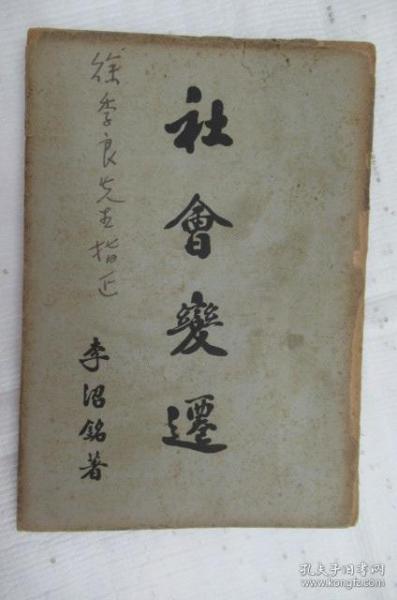 社會變遷
徐季良先生指正
李沼銘著
孔夫子旧书网
www.kongfz.com